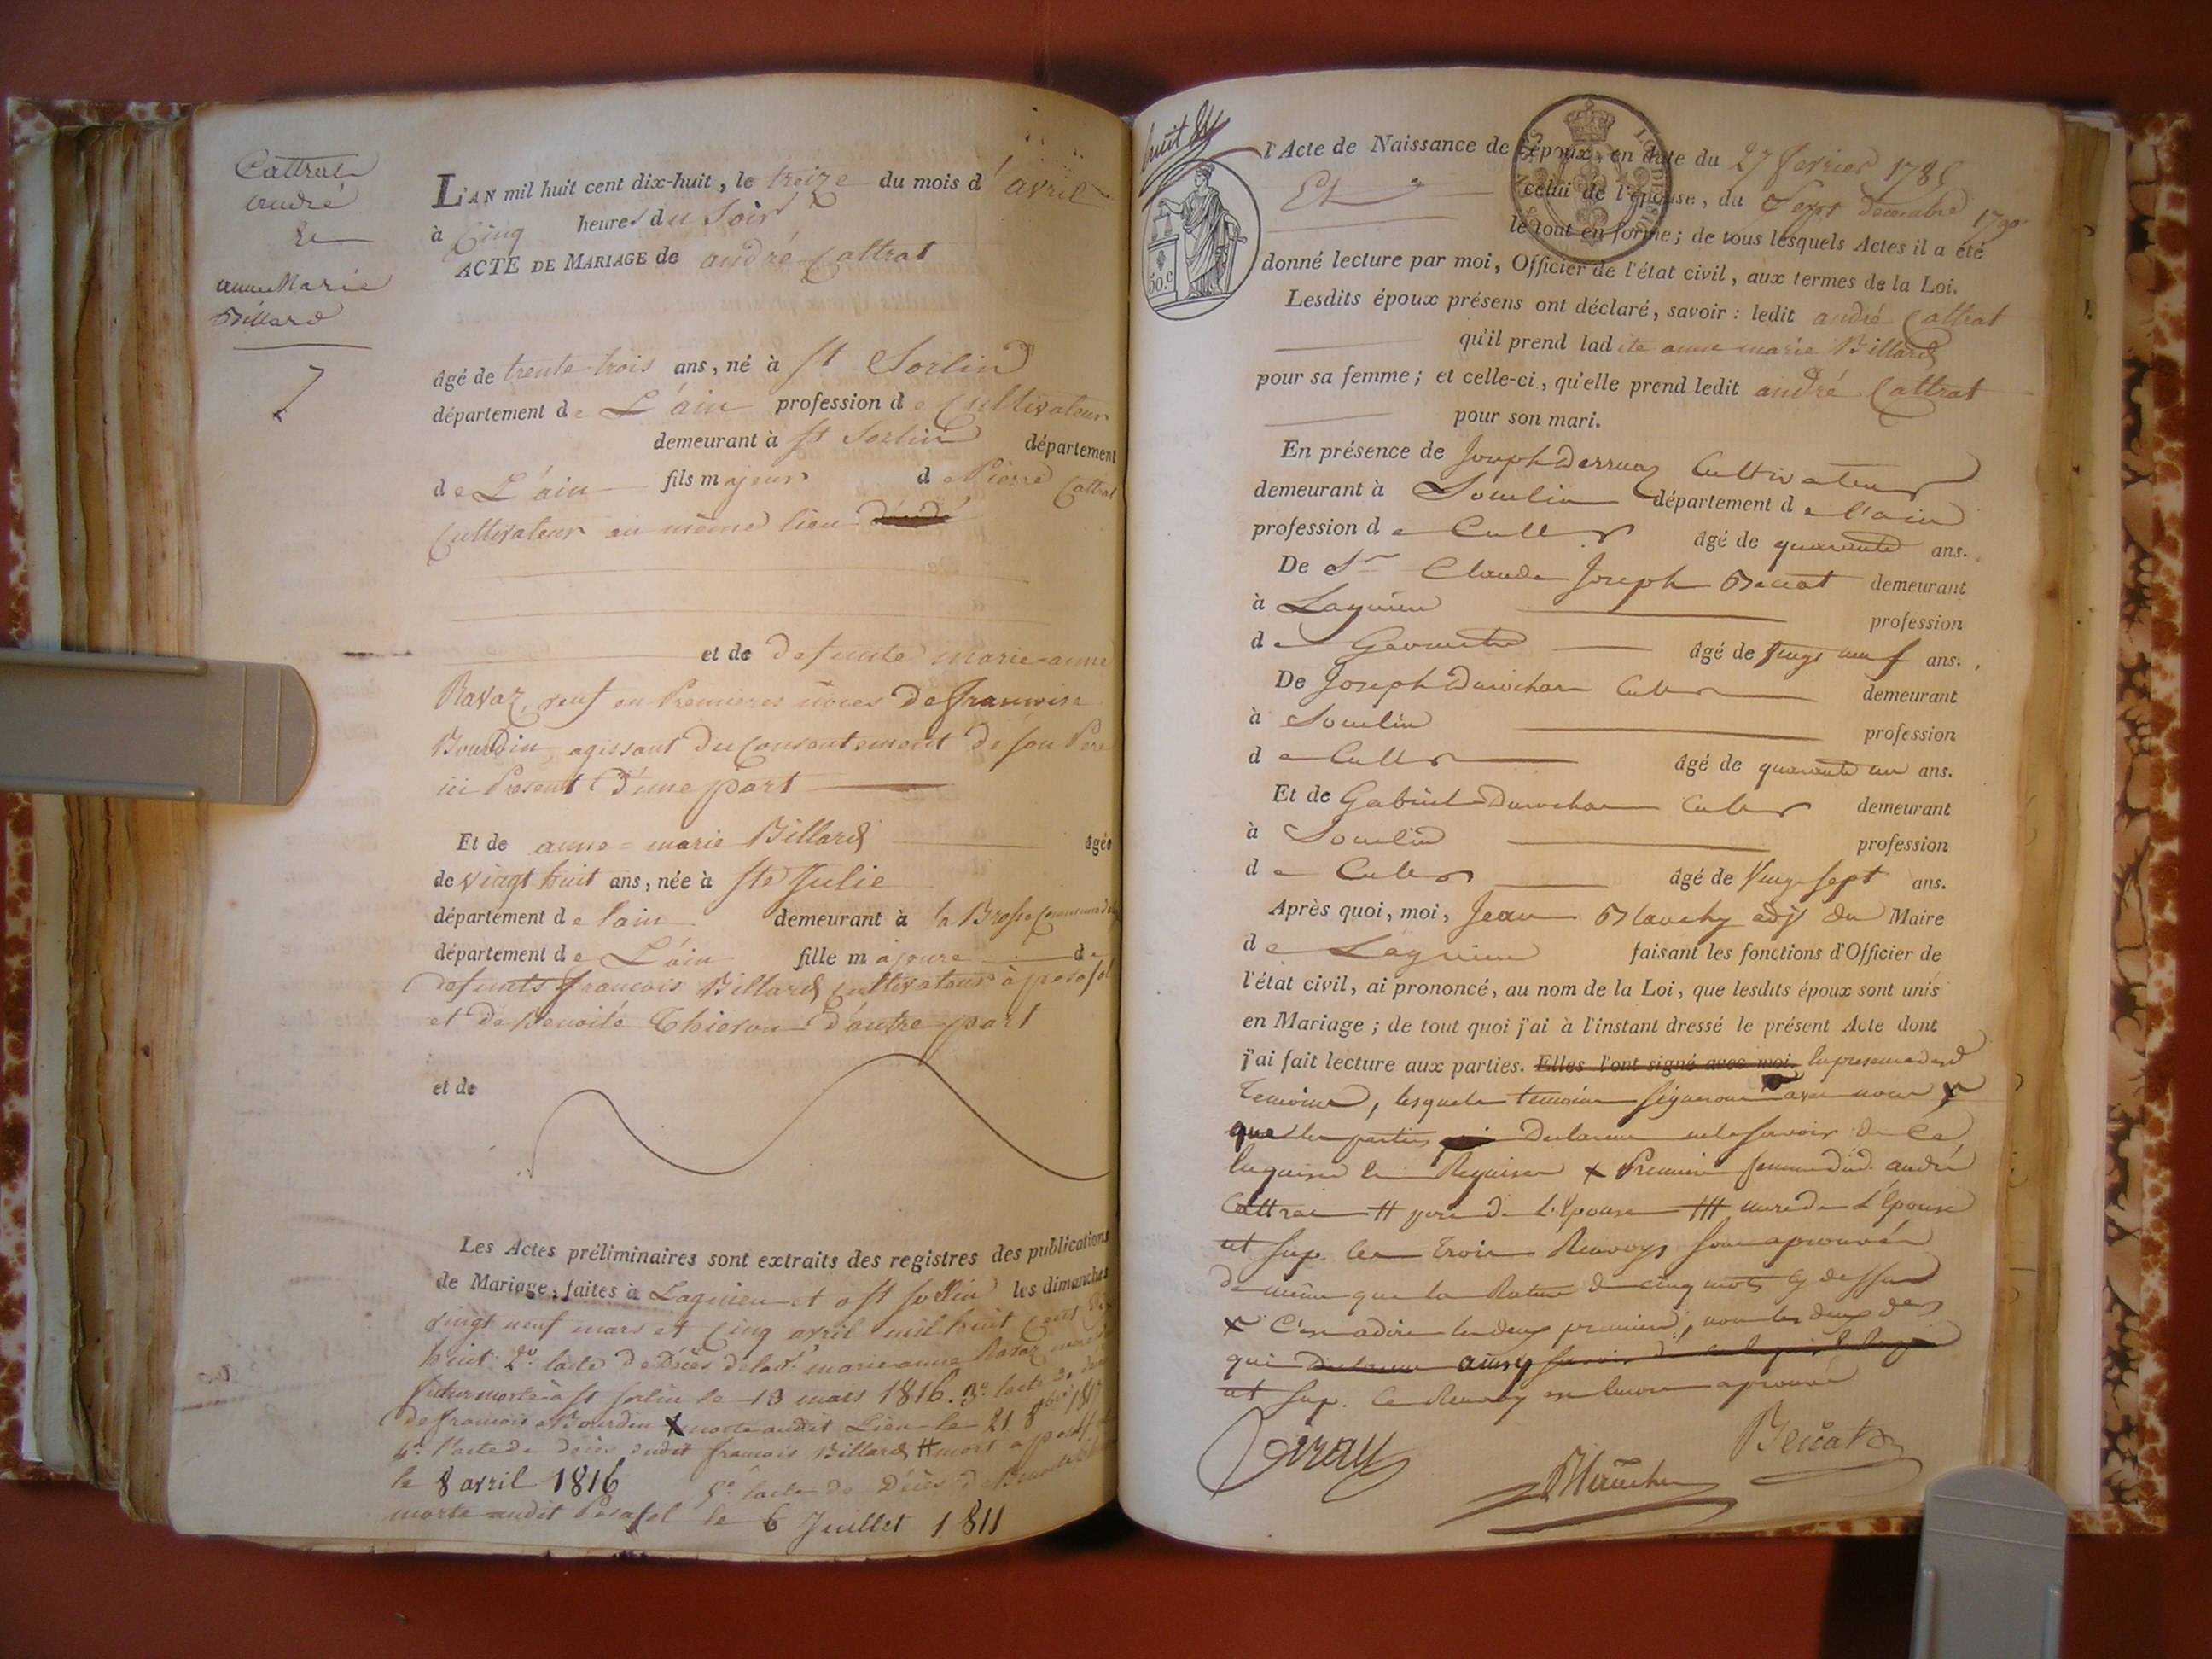 Cattrat
andré
Et
anne Marie
Billard
7
L'AN mil huit cent dix-huit, le treize du mois d'avril
à Cinq heures du Soir
ACTE DE MARIAGE de andré Cattrat
âgé de trente trois ans, né à St Sorlin
département de L'ain profession de Cultivateur
demeurant à St Sorlin département
de L'ain fils majeur de Pierre Cattrat
Cultivateur au même lieu
et de defunte marie-anne
Ravaz, veuf en Premieres nôces de francoise
Bourdin, agissant du Consentement de son Pere
ici Présent D'une part
Et de anne=marie Billard âgée
de vingt huit ans, née à Ste Julie
département de lain demeurant à la Brosse
département de L'ain fille majeure de
defunts francois Billard Cultivateur à posafol
et de Benoite Thieron D'autre part
et de
Les Actes préliminaires sont extraits des registres des publications
de Mariage, faites à Lagnieu et a St Sorlin les dimanches
vingt neuf mars et Cinq avril mil huit Cent dix
huit 2° lacte de Décès de lad. marie anne Ravaz
morte a St Sorlin le 13 mars 1816. 3° lacte de
de francoise Bourdin X morte audit Lieu le 21 8bre
4° l'acte de décès dudit francois Billard # mort a
le 8 avril 1816 5° lacte de Décès de Benoite
morte audit Posafol le 6 Juillet 1811
huit
50.c
l'Acte de Naissance de l'époux, en date du 27 fevrier 1785
Et celui de l'épouse, du Sept Decembre
le tout en forme; de tous lesquels Actes il a été
donné lecture par moi, Officier de l'état civil, aux termes de la Loi.
Lesdits époux présens ont déclaré, savoir: ledit andré Cattrat
qu'il prend ladite anne marie Billard
pour sa femme; et celle-ci, qu'elle prend ledit andré Cattrat
pour son mari.
En présence de Joseph Derruaz Cultivateur
demeurant à Soulin département de l'ain
profession de Cultr âgé de quarante ans.
De Sr Claude Joseph Beccat demeurant
à Lagnieu profession
de Geometre âgé de vingt neuf ans.
De Joseph Durochat Cultr demeurant
à Soulin profession
de Cultr âgé de quarante un ans.
Et de Gabriel Durochat Cultr demeurant
à Soulin profession
de Cultr âgé de vingt sept ans.
Après quoi, moi, Jean Blanchy adjt du Maire
de Lagnieu faisant les fonctions d'Officier de
l'état civil, ai prononcé, au nom de la Loi, que lesdits époux sont unis
en Mariage; de tout quoi j'ai à l'instant dressé le présent Acte dont
j'ai fait lecture aux parties. Elles l'ont signé avec moi. en presence des d
Temoins, lesquels temoins signeront avec nous X
que les parties declarent ne le savoir de ce
enquises et Requises X Premiere femme dud. andré
Cattrat # pere de L'Epouse ### mere de L'Epouse
ut sup. les trois Renvoys sont aprouvés
de même que la Rature de cinq mots cy dessus
X C'est a dire les deux premiers, non les deux
qui
ut sup. ce Renvoy est encore aprouvé
Blanchy
Beccat